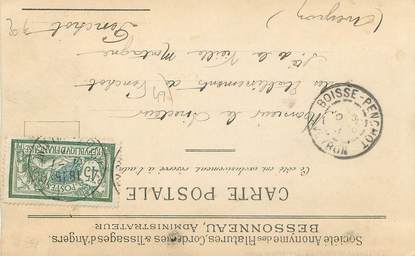 Société Anonyme des Filatures, Corderies & Tissages d'Angers.
BESSONNEAU, ADMINISTRATEUR
CARTE POSTALE
Ce côté est exclusivement réservé à l'adresse
Monsieur le Directeur
des Etablissements de Penchot
Sté de la Vieille Montagne
Penchot
(Aveyron)
BOISSE-PENCHOT
AVEYRON
REPUBLIQUE FRANÇAISE
POSTES
45